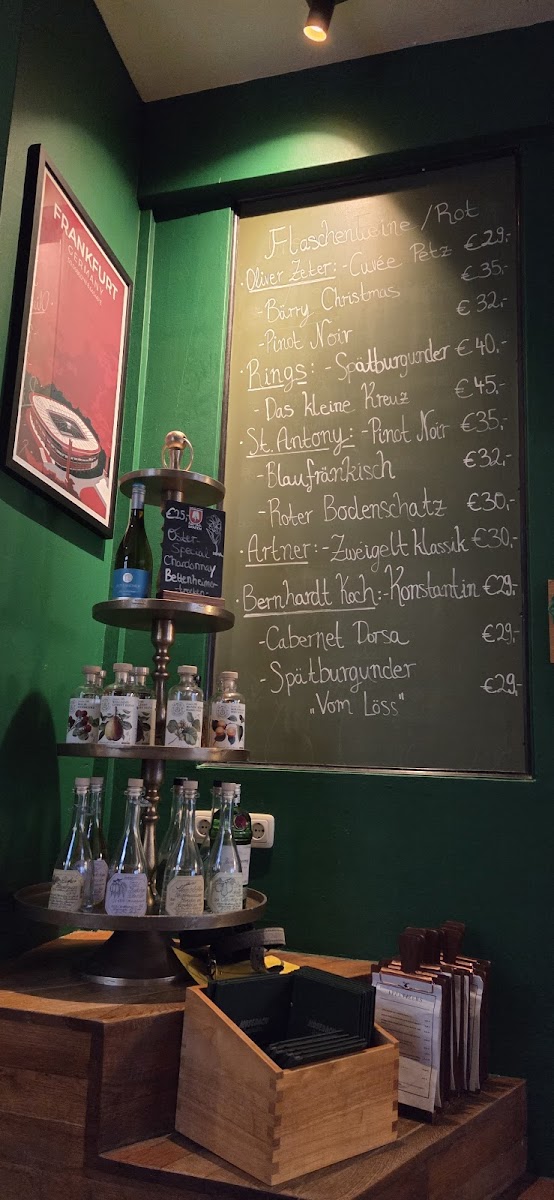 FRANKFURT
GERMANY
Flaschenweine/Rot
·Oliver Zeter: -Cuvée Petz €29,-
-Bärry Christmas €35,-
-Pinot Noir €32,-
·Rings: -Spätburgunder €40,-
-Das kleine Kreuz €45,-
·St. Antony: -Pinot Noir €35,-
-Blaufränkisch €32,-
-Roter Bodenschatz €30,-
·Artner: -Zweigelt klassik €30,-
·Bernhardt Koch: -Konstantin €29,-
-Cabernet Dorsa €29,-
-Spätburgunder €29,-
„Vom Löss"
€25,-
Oster
Special
Chardonnay